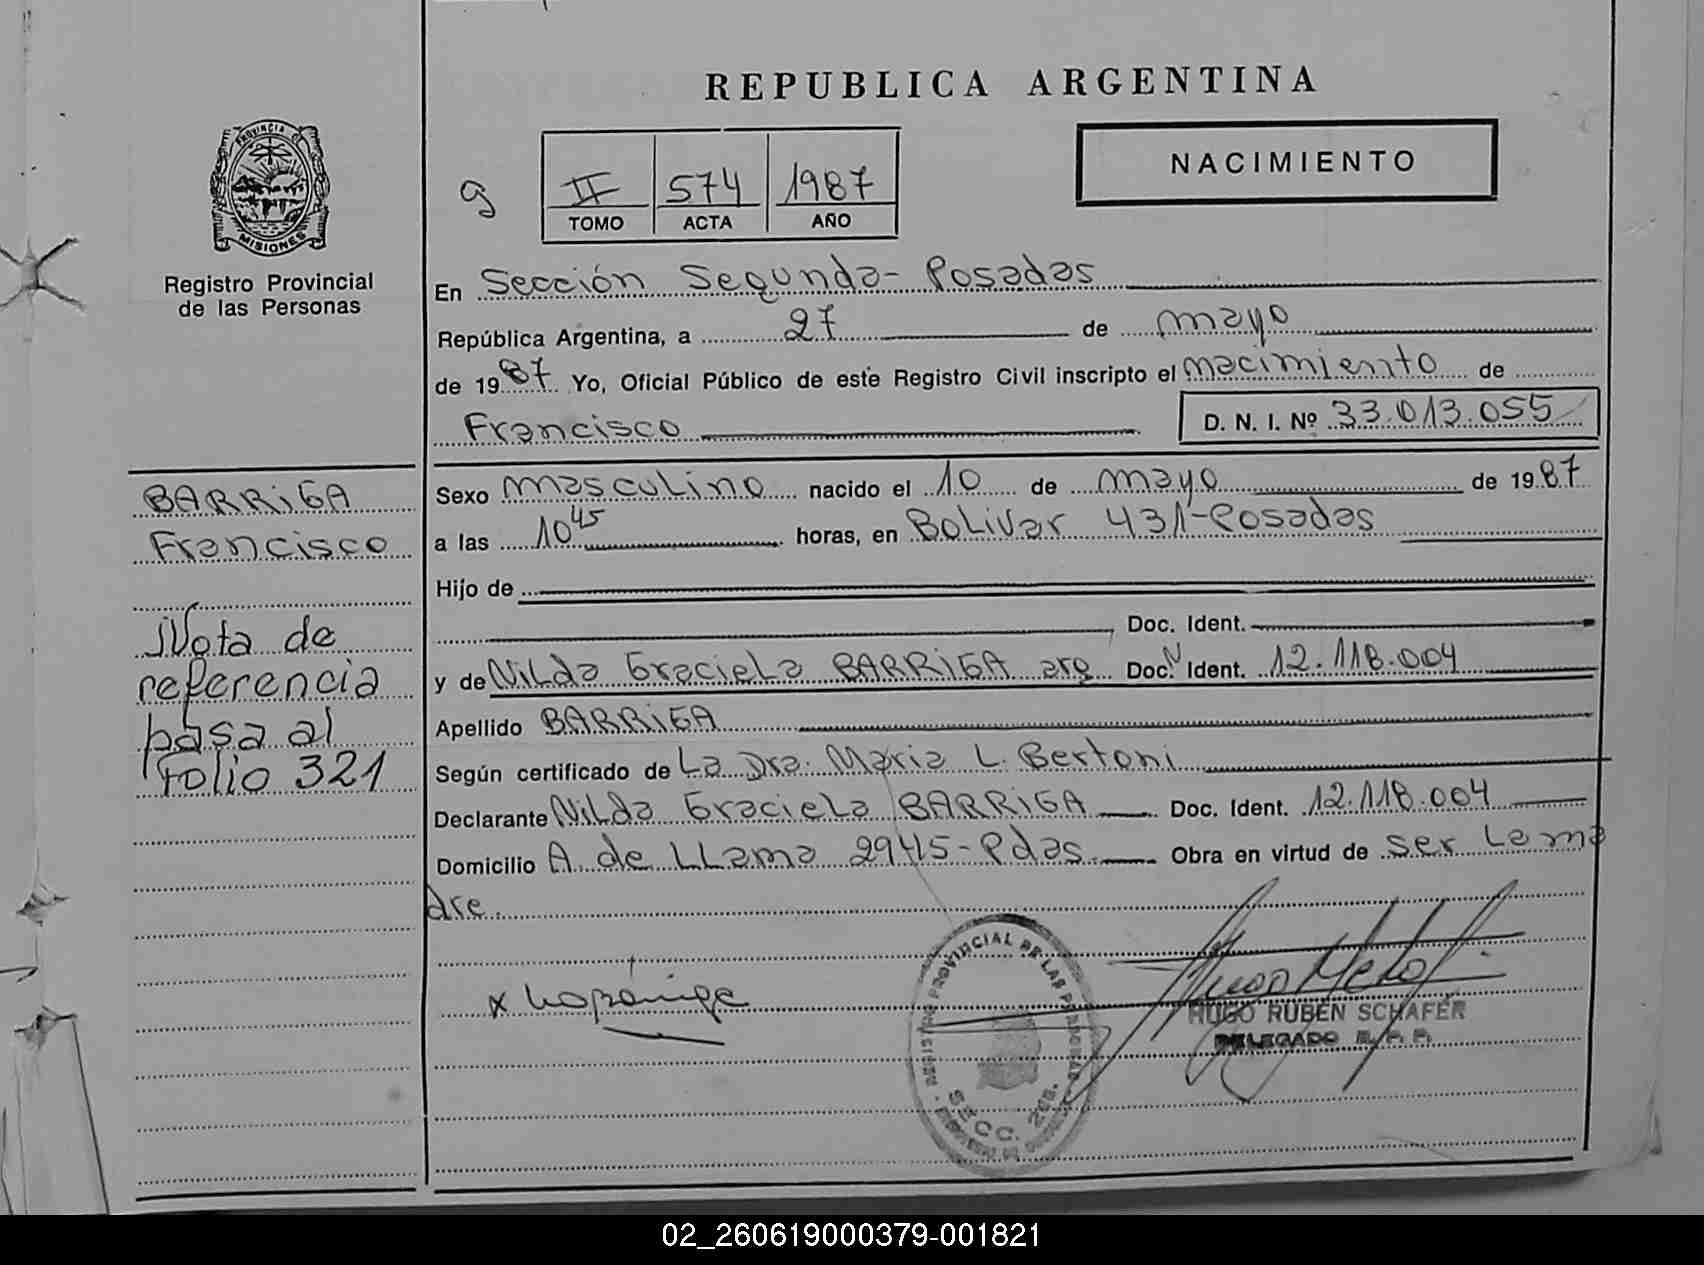 REPUBLICA ARGENTINA
PROVINCIA D
MISIONES
Registro Provincial
de las Personas
NACIMIENTO
9
II 574 1987
TOMO ACTA AÑO
En Sección Segunda- Posadas
República Argentina, a 27 de mayo
de 1987 Yo, Oficial Público de este Registro Civil inscripto el nacimiento de
Francisco D. N. I. Nº 33.013.055
BARRIGA
Francisco
Nota de
referencia
pasa al
Folio 321
Sexo masculino nacido el 10 de mayo de 1987
a las 10 45 horas, en Bolivar 431-Posadas
Hijo de
Doc. Ident.
y de Nilda Graciela BARRIGA arg Doc. N Ident. 12.118.004
Apellido BARRIGA
Según certificado de La Dra. Maria L. Bertoni
Declarante Nilda Graciela BARRIGA Doc. Ident. 12.118.004
Domicilio A. de LLama 2945-Pdas Obra en virtud de ser La ma
dre.
REGISTRO PROVINCIAL DE LAS PERSONAS
SECC. 2da.
x
HUGO RUBEN SCHAFER
DELEGADO R. P. P.
02_260619000379-001821